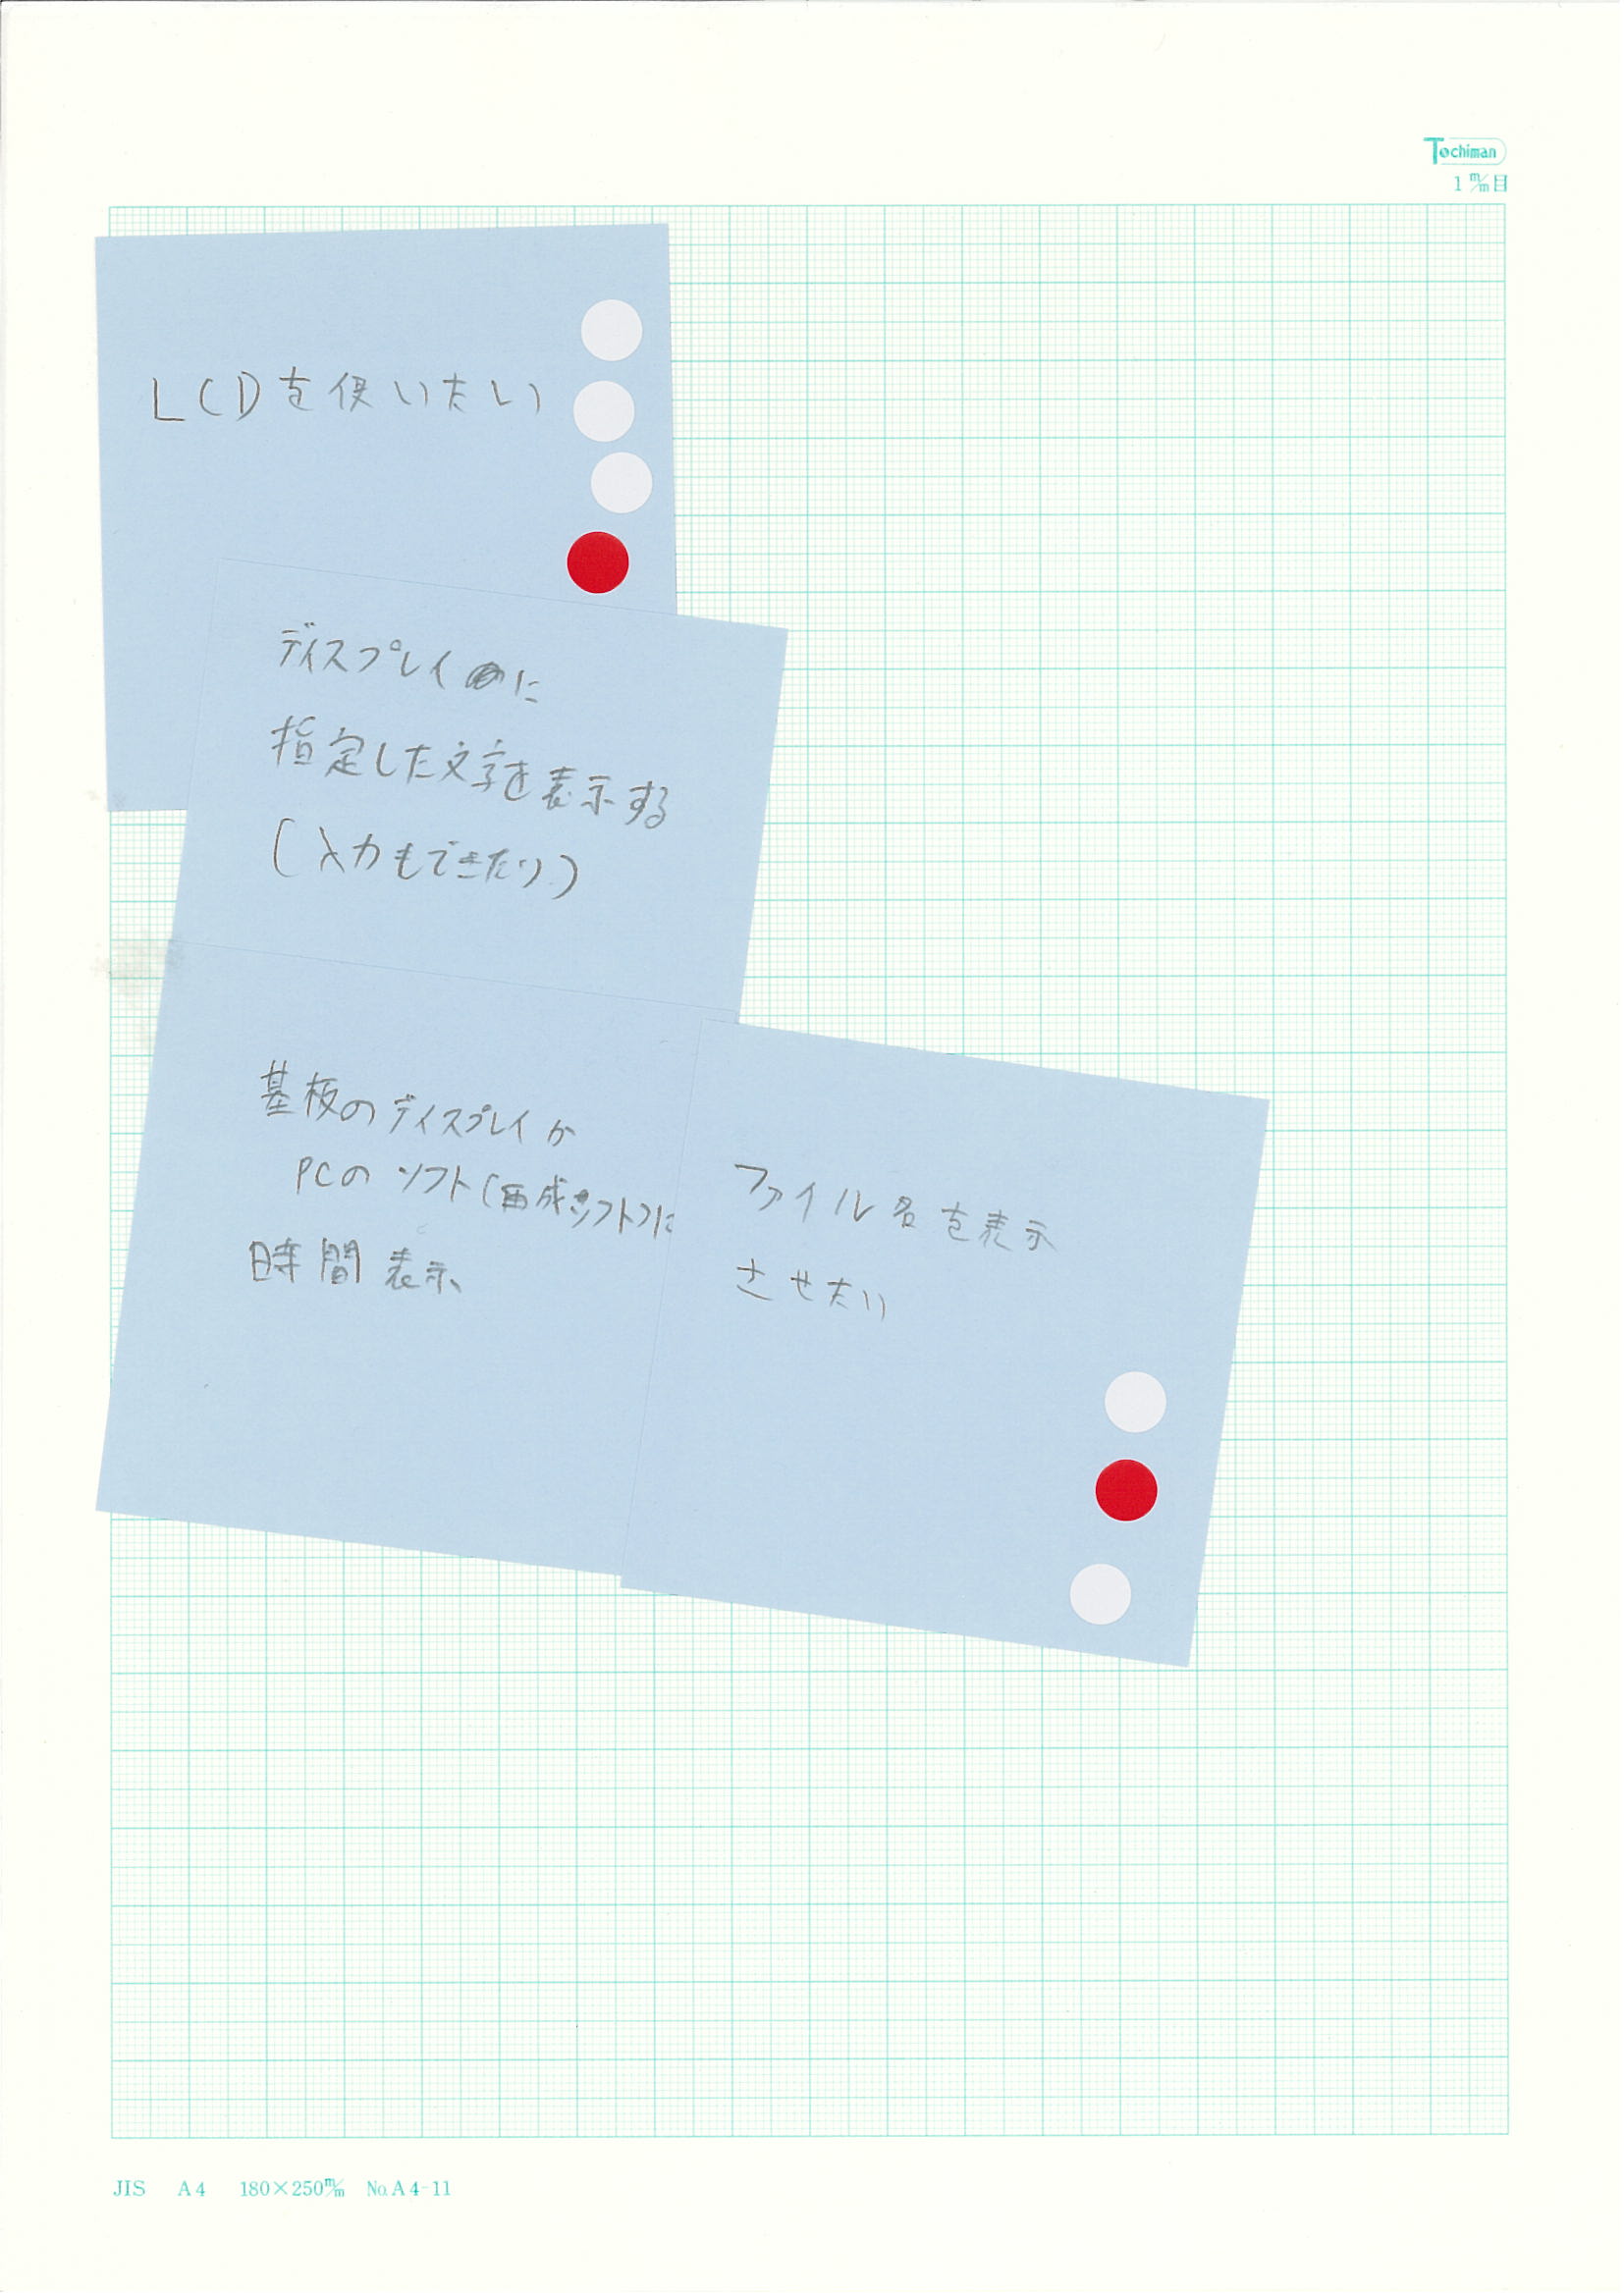 Tochiman
1 m/m目
LCDを使いたい
ディスプレイに
指定した文字を表示する
(入力もできたり)
基板のディスプレイか
PCのソフト(作成ソフト)に
時間表示
ファイル名を表示
させたい
JIS A4 180×250m/m No.A4-11